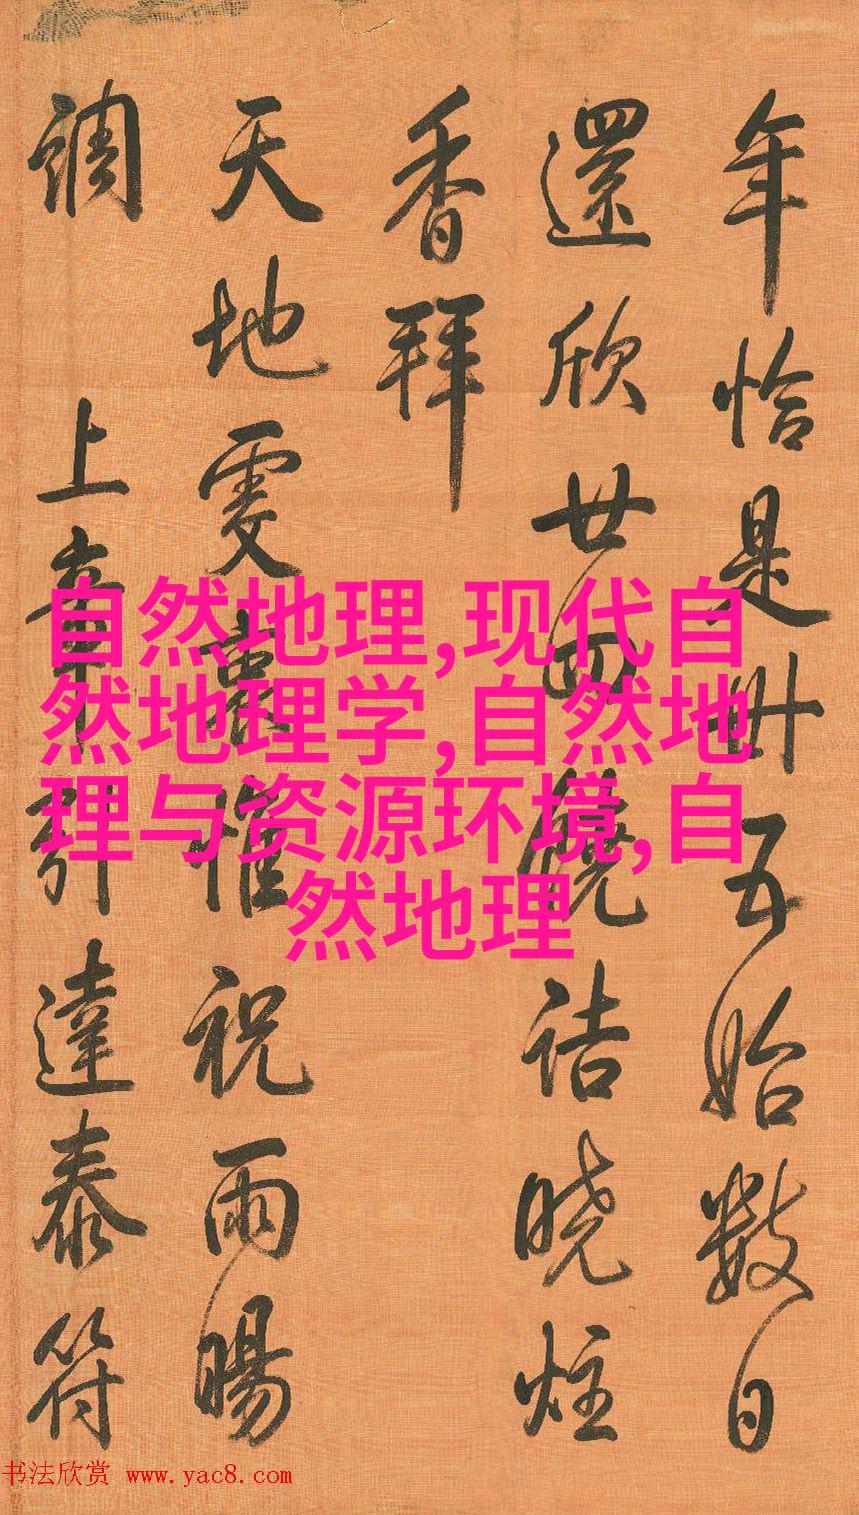 年恰是卅五始数日
還欣廿四饒詰曉炷
香拜
天地雯裏惟祝雨暘
調 上辛引達泰符
自然地理,现代自
然地理学,自然地
理与资源环境,自
然地理
书法欣赏 www.yac8.com